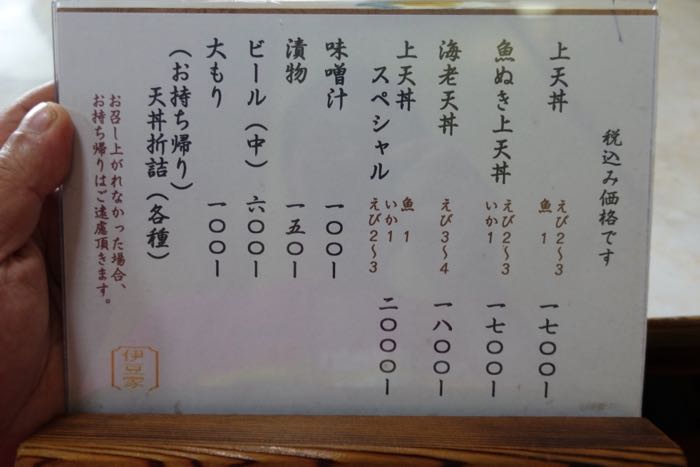 税込み価格です
上天丼
えび2〜3
魚 1
一七〇〇ー
魚ぬき上天丼
えび2〜3
いか1
一七〇〇ー
海老天丼
えび3〜4
一八〇〇ー
上天丼
スペシャル
魚 1
いか1
えび2〜3
二〇〇〇ー
味噌汁
一〇〇ー
漬物
一五〇ー
ビール（中）
六〇〇ー
大もり
一〇〇ー
（お持ち帰り）
天丼折詰（各種）
お召し上がれなかった場合、
お持ち帰りはご遠慮頂きます。
伊豆家